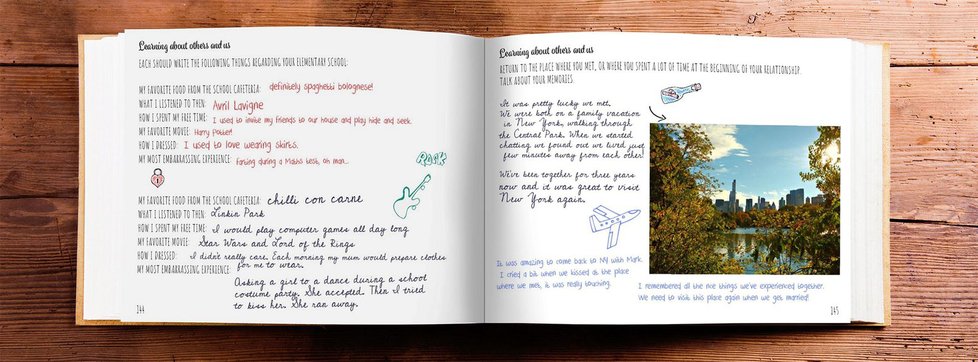 Learning about others and us
EACH SHOULD WRITE THE FOLLOWING THINGS REGARDING YOUR ELEMENTARY SCHOOL:
MY FAVORITE FOOD FROM THE SCHOOL CAFETERIA: definitely spaghetti bolognese!
WHAT I LISTENED TO THEN: Avril Lavigne
HOW I SPENT MY FREE TIME: I used to invite my friends to our house and play hide and seek.
MY FAVORITE MOVIE: Harry Potter!
HOW I DRESSED: I used to love wearing skirts.
MY MOST EMBARRASSING EXPERIENCE: Farting during a Maths test, oh man...
ROCK
MY FAVORITE FOOD FROM THE SCHOOL CAFETERIA: chilli con carne
WHAT I LISTENED TO THEN: Linkin Park
HOW I SPENT MY FREE TIME: I would play computer games all day long
MY FAVORITE MOVIE: Star Wars and Lord of the Rings
HOW I DRESSED: I didn't really care. Each morning my mum would prepare clothes
for me to wear.
MY MOST EMBARRASSING EXPERIENCE:
Asking a girl to a dance during a school
costume party. She accepted. Then I tried
to kiss her. She ran away.
144
Learning about others and us
RETURN TO THE PLACE WHERE YOU MET, OR WHERE YOU SPENT A LOT OF TIME AT THE BEGINNING OF YOUR RELATIONSHIP.
TALK ABOUT YOUR MEMORIES.
It was pretty lucky we met.
We were both on a family vacation
in New York, walking through
the Central Park. When we started
chatting we found out we lived just
few minutes away from each other!
We've been together for three years
now and it was great to visit
New York again.
It was amazing to come back to NY with Mark.
I cried a bit when we kissed at the place
where we met, it was really touching.
I remembered all the nice things we've experienced together.
We need to visit this place again when we get married!
145